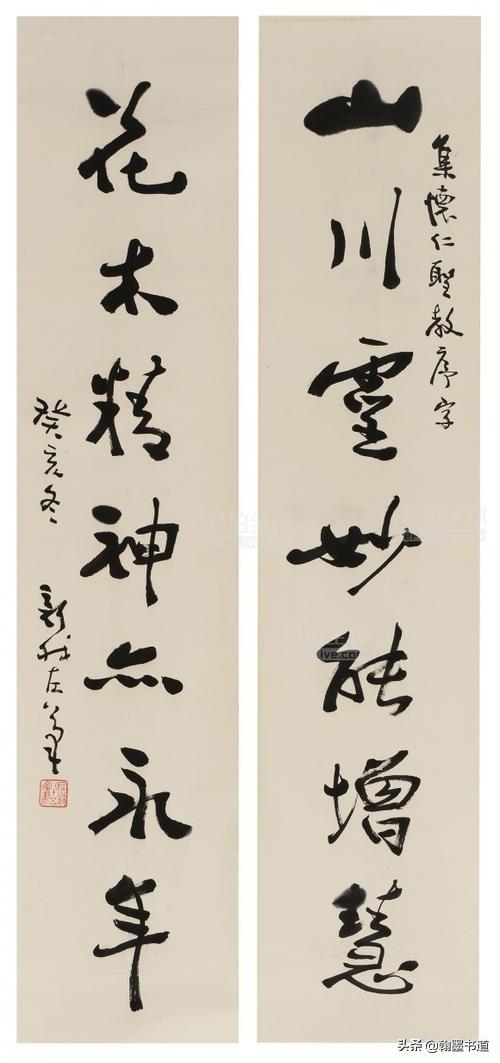 集懷仁聖教序字
山川靈妙能增慧
花木精神亦永年
癸亥冬 新我左筆
头条 @翰墨书道